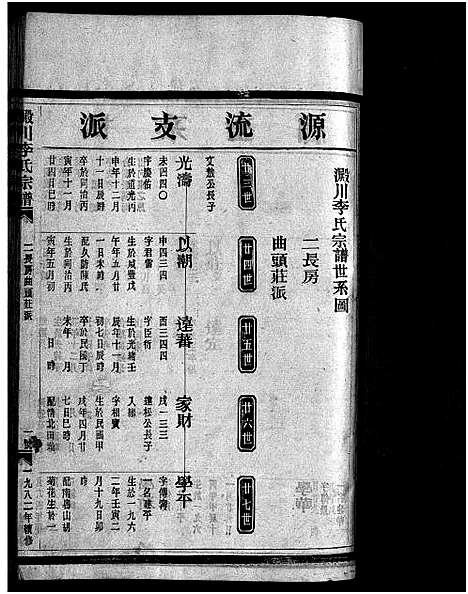 源流支派
澱川李氏宗譜世系圖
二長房
曲頭莊派
廿三世
廿四世
廿五世
廿六世
廿七世
文歡公長子
光濤
未四四〇
生於道光丙
申年十二月
十一日辰時
卒於同治丙
寅年十一月
廿四日巳時
以潮
申四三四
字君雷
生於咸豐戊
午年五月廿
一日未時
生於同治丙
寅年五月初
達蕃
酉三四四
字臣衍
生於光緒壬
辰年十一月
初七日辰時
卒於民國丁
未年 月
日 時
家財
戌一三三
達松公長子
字相寶
生於民國甲
戌年四月廿
七日巳時
學平
字傳濤
一名建平
生於一九六
二年壬寅二
月十九日卯
時
配南房山胡
菊花生於一
澱川李氏宗譜
二長房曲頭莊派
一九八二年續修